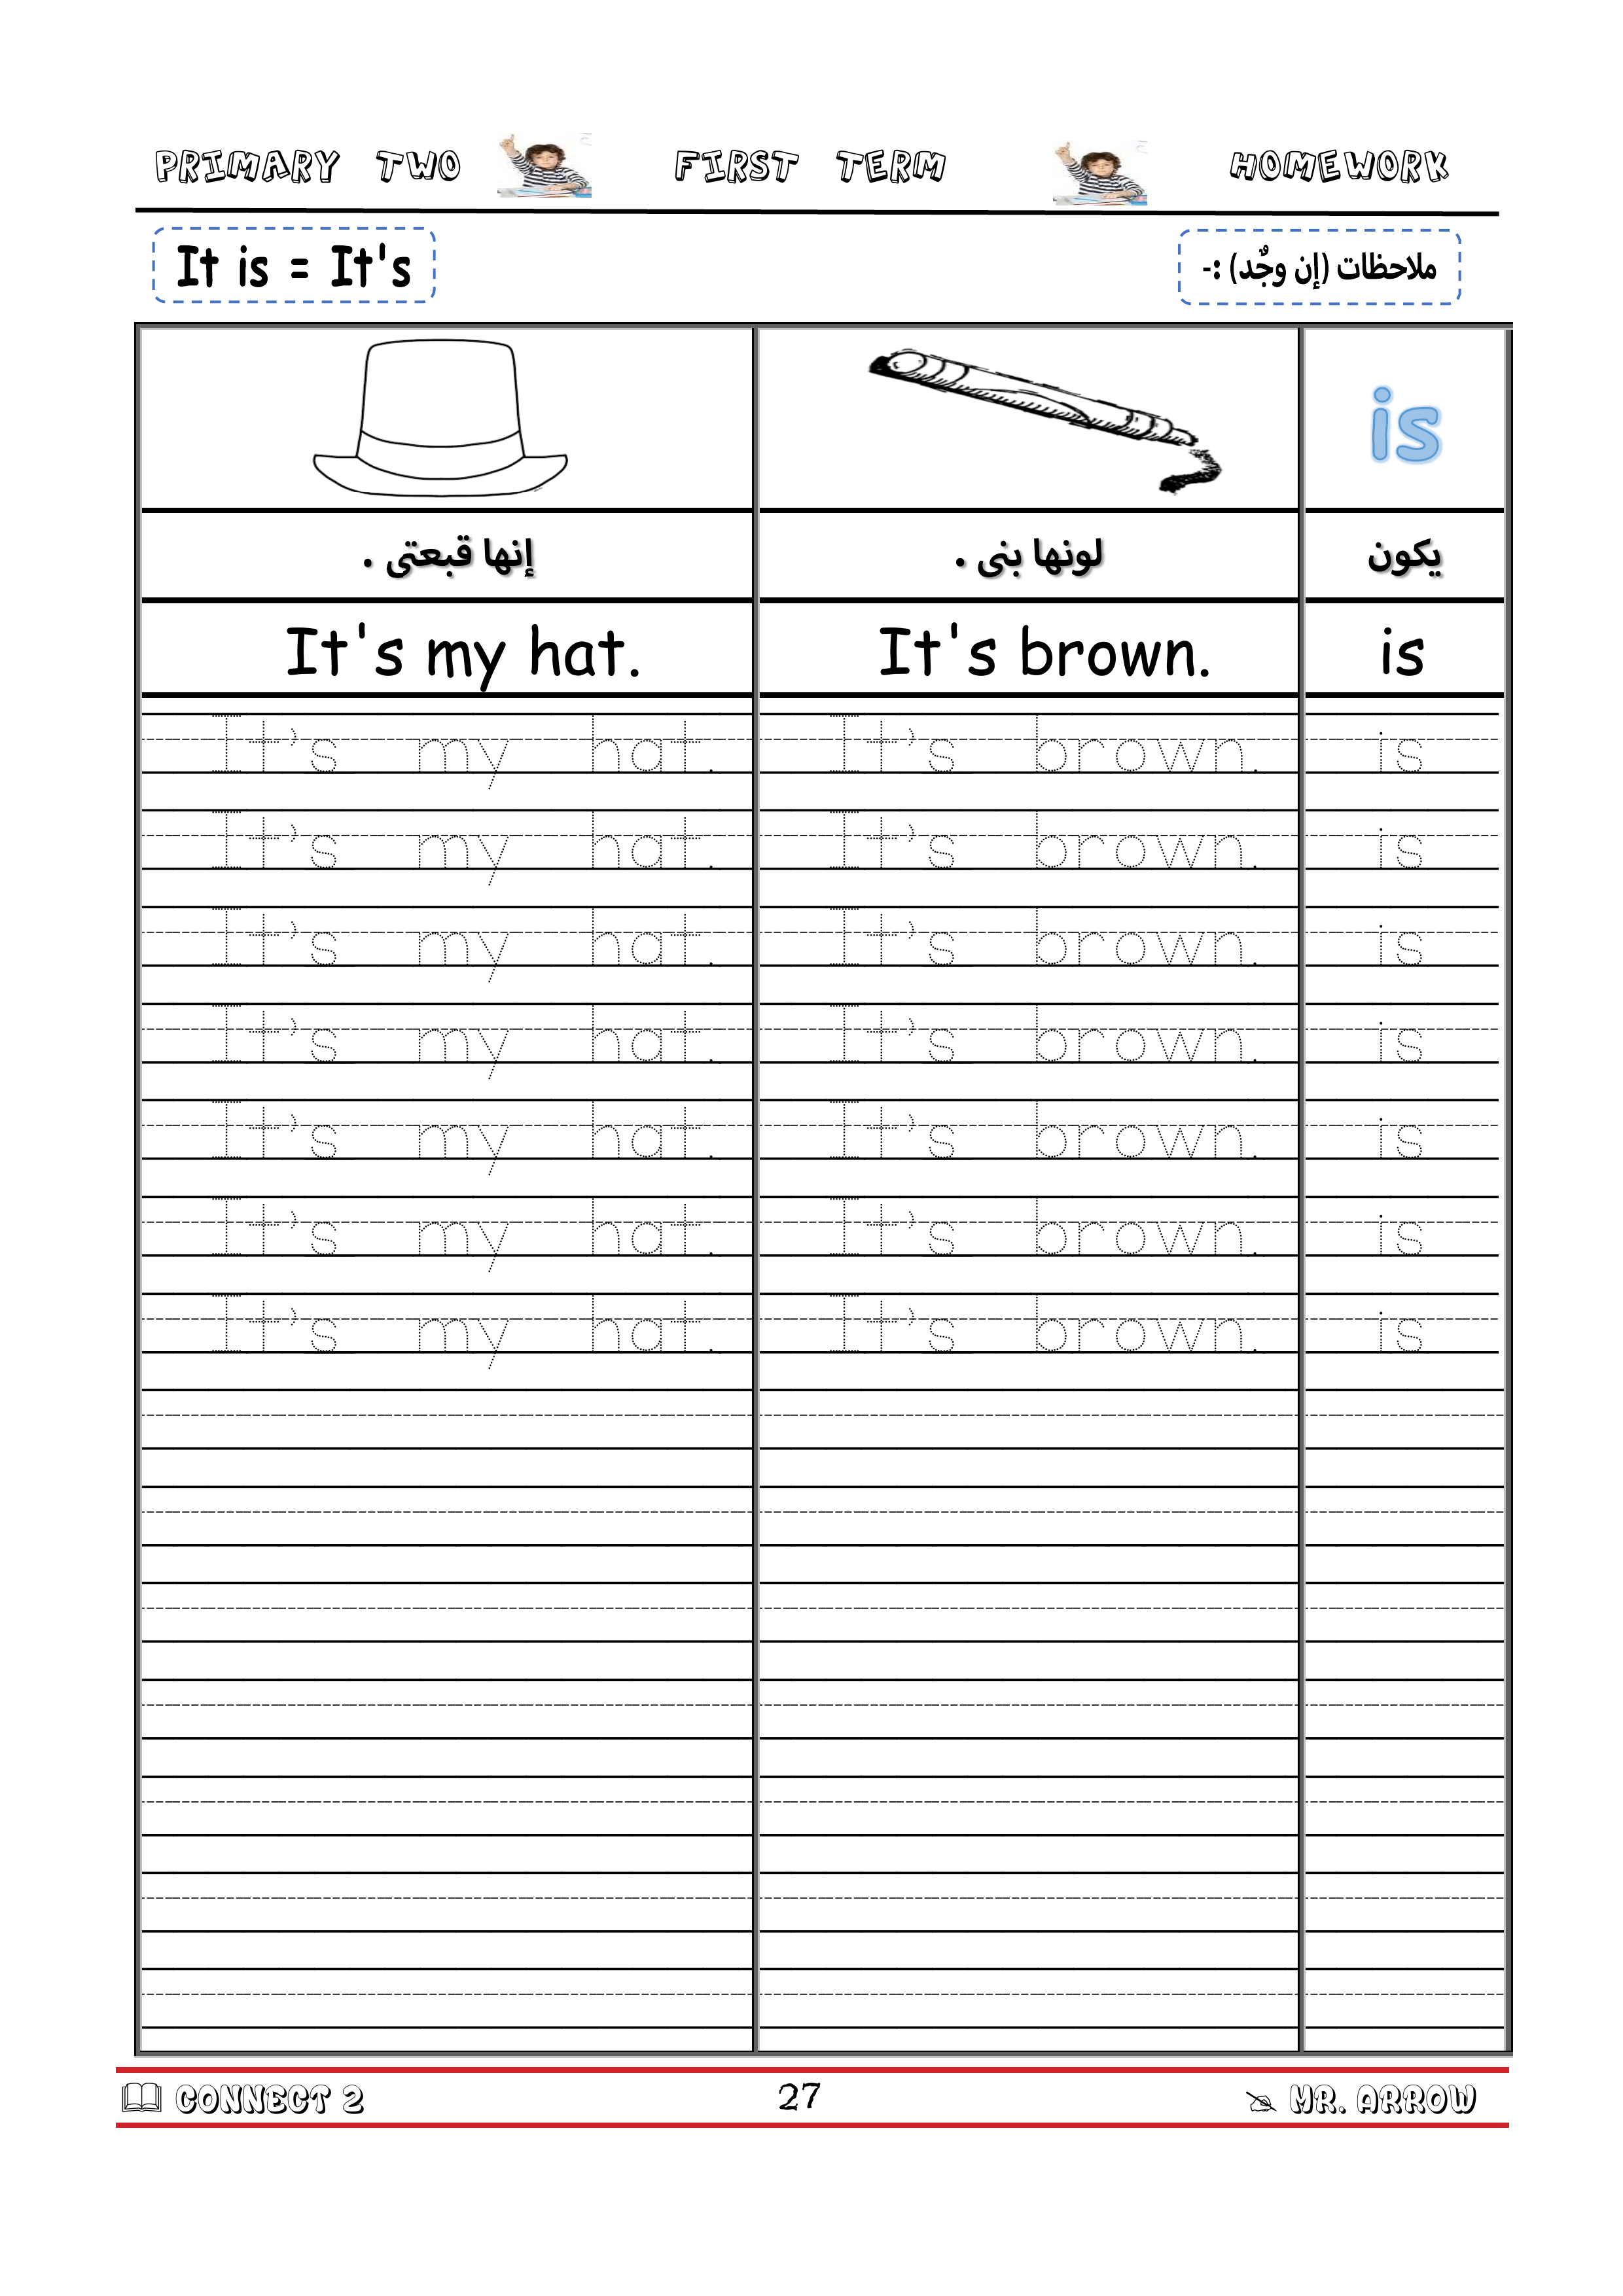 PRIMARY TWO FIRST TERM HOMEWORK
It is = It's
ملاحظات (إن وجٌد) :-
is
إنها قبعتى . لونها بنى . يكون
It's my hat. It's brown. is
It's my hat. It's brown. is
It's my hat. It's brown. is
It's my hat. It's brown. is
It's my hat. It's brown. is
It's my hat. It's brown. is
It's my hat. It's brown. is
It's my hat. It's brown. is
CONNECT 2 27 MR. ARROW